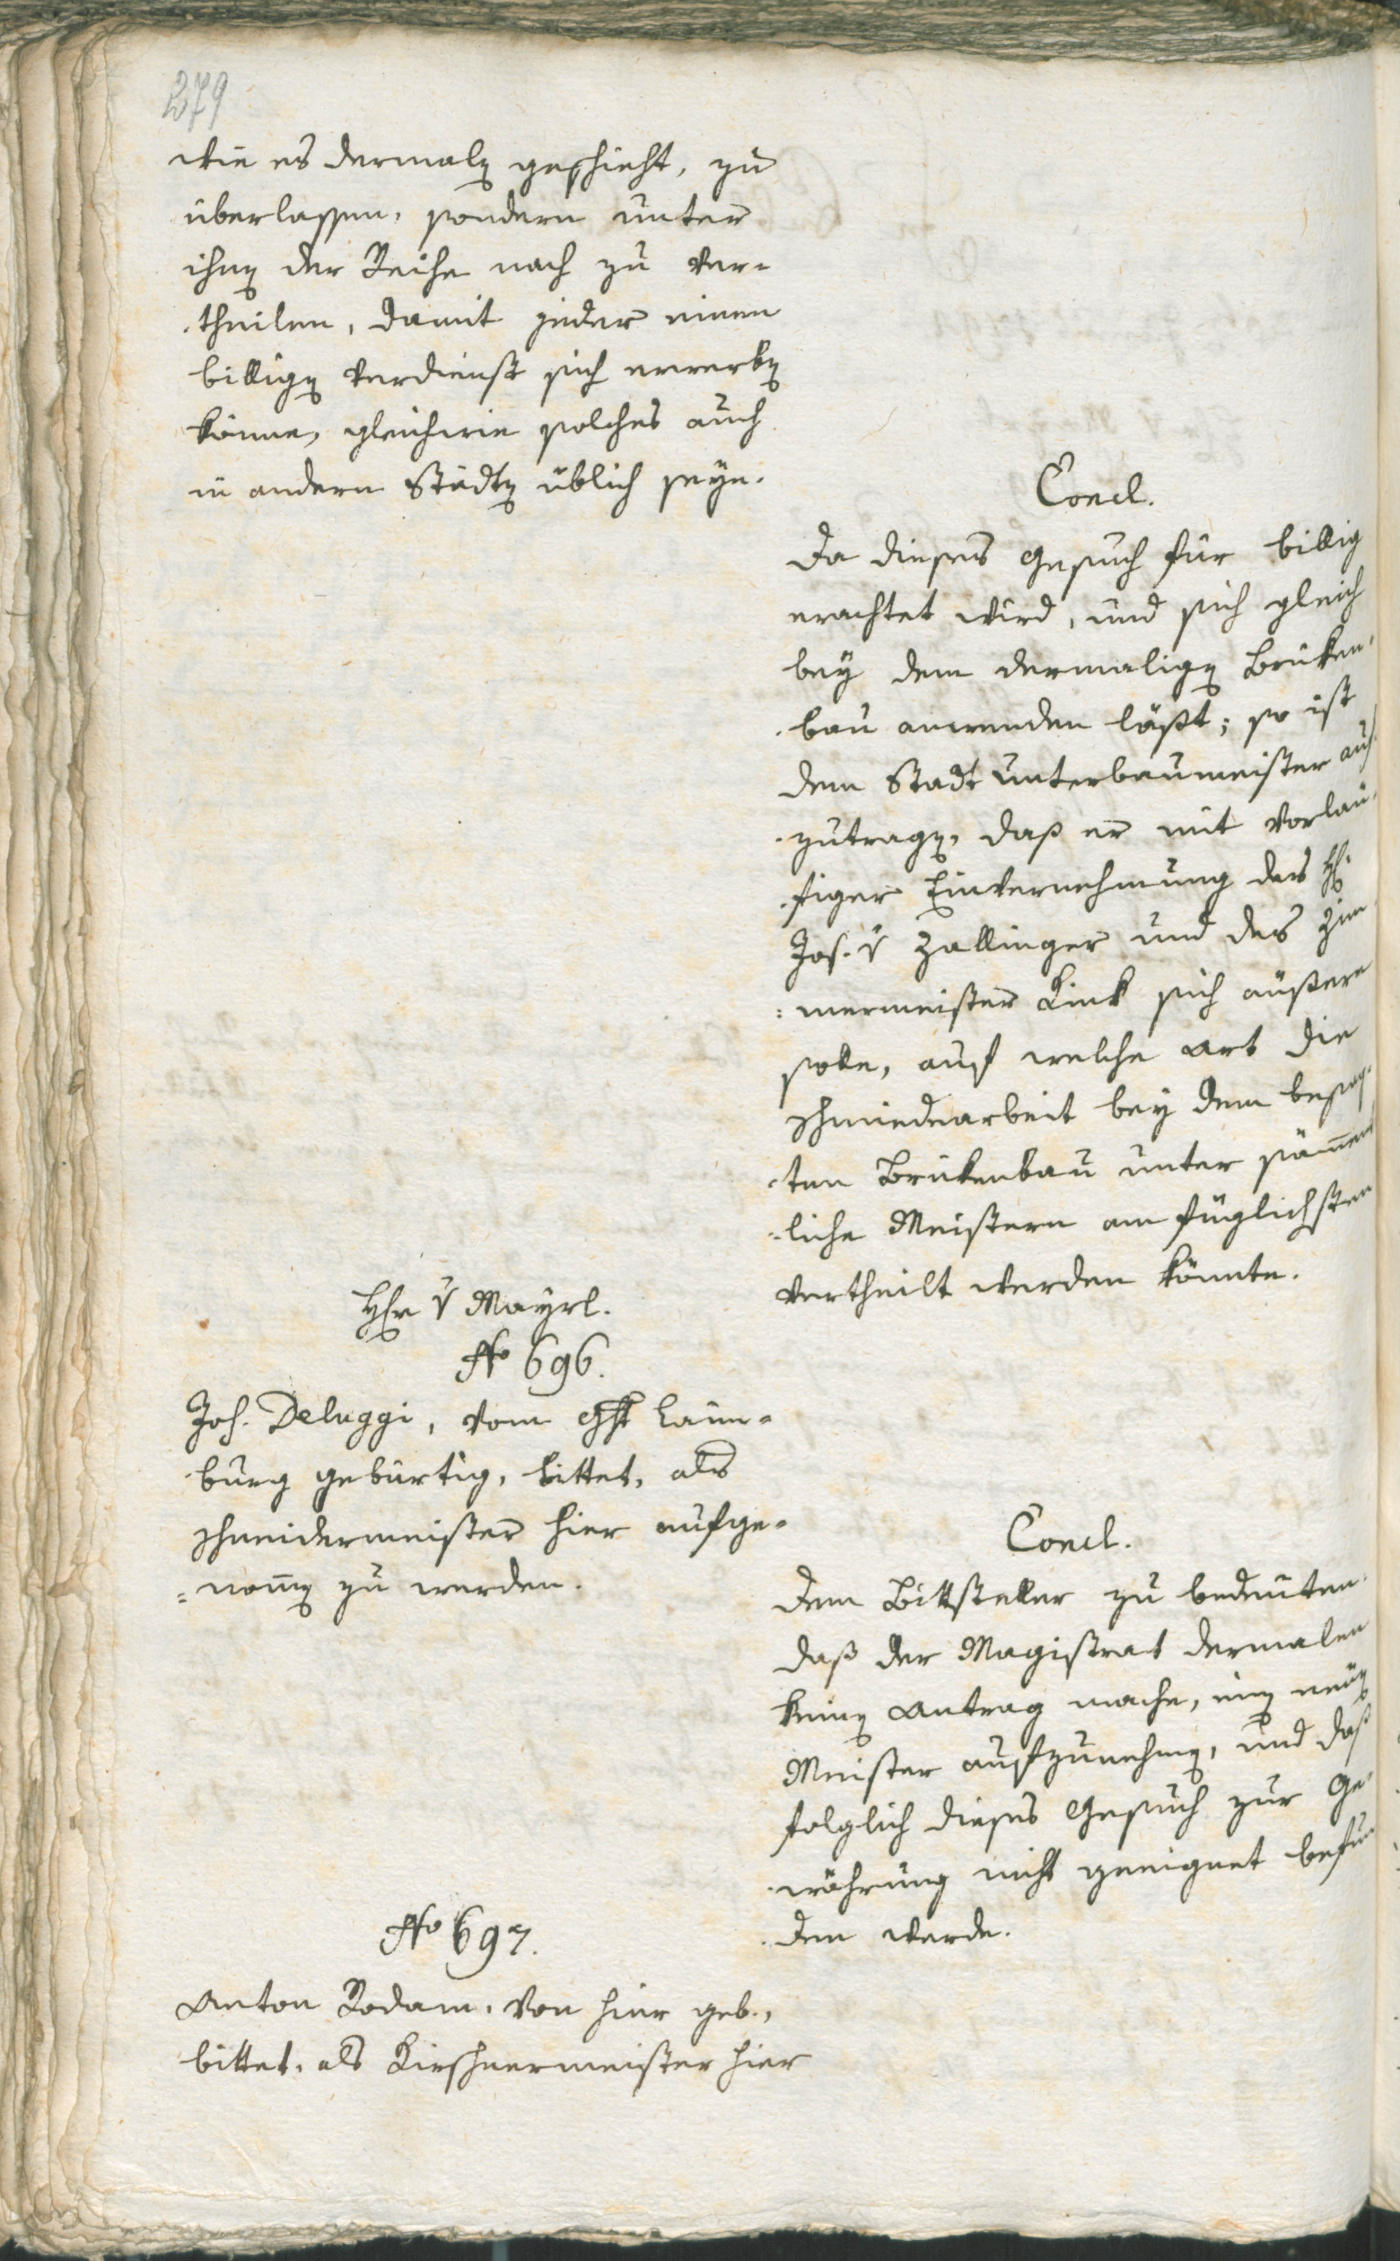 279
wie es dermaln geschieht, zu
überlassen, sondern unter
ihnen der Reihe nach zu ver-
theilen, damit jeder einen
billigen Verdienst sich erwerben
könne, gleichwie solches auch
in andern Städten üblich seye.
Concl.
Da dieses Gesuch für billig
erachtet wird, und sich gleich
bey dem dermaligen Brüken-
bau anwenden läßt; so ist
dem Stadt Unterbaumeister auf
zutragen, daß er mit vorläu-
figer Einvernehmung des H.
Jos. v Zallinger und des Zim
mermeister Kink sich äußern
solle, auf welche Art die
Schmiedearbeit bey dem besag-
ten Brükenbau unter sämmt
liche Meistern am füglichsten
vertheilt werden könnte.
Hr v Mayrl.
No 696.
Joh. Deluggi, vom Ght Laim-
burg gebürtig, bittet, als
Schneidermeister hier aufge-
nommen zu werden.
Concl.
Dem Bittsteller zu bedeuten
daß der Magistrat dermalen
keinen Antrag mache, einen neuen
Meister aufzunehmen, und daß
folglich dieses Gesuch zur Ge-
währung nicht geeignet befun
den werde.
No 697.
Anton Rodam, von hier geb.,
bittet, als Kirschnermeister hier